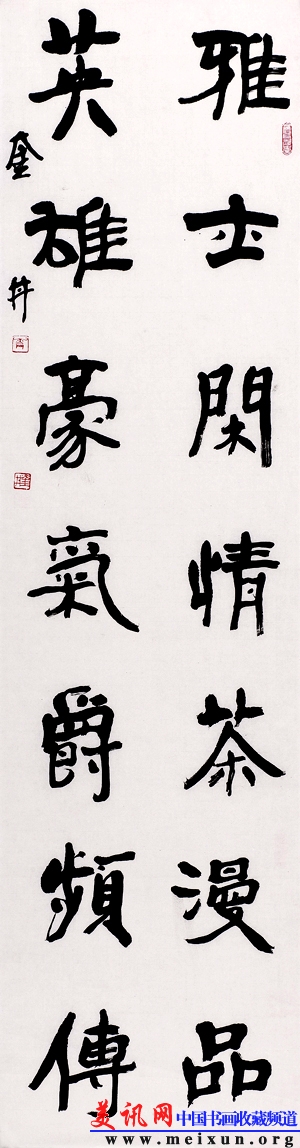 雅士閑情茶漫品
英雄豪氣爵頻傳
美讯网 中国书画收藏频道
www.meixun.org